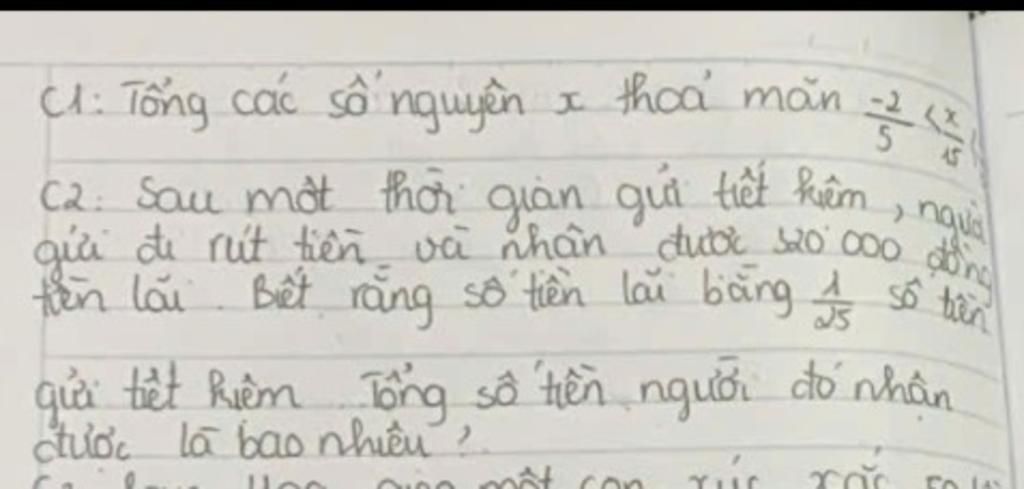 C1: Tổng các số nguyên x thoả mãn -2/5 < x/15
C2: Sau một thời gian gửi tiết kiệm, người
gửi đi rút tiền và nhận được 520 000 đồng
tiền lãi. Biết rằng số tiền lãi bằng 1/25 số tiền
gửi tiết kiệm. Tổng số tiền người đó nhận
được là bao nhiêu?
một con xúc xắc